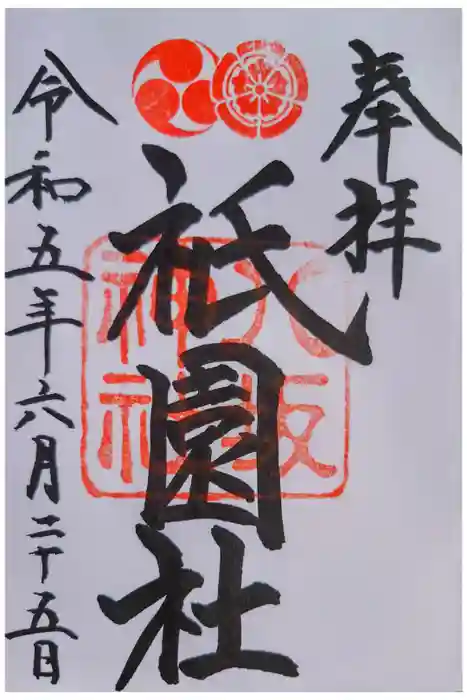 奉拝
祇園社
八坂
神社
令和五年六月二十五日